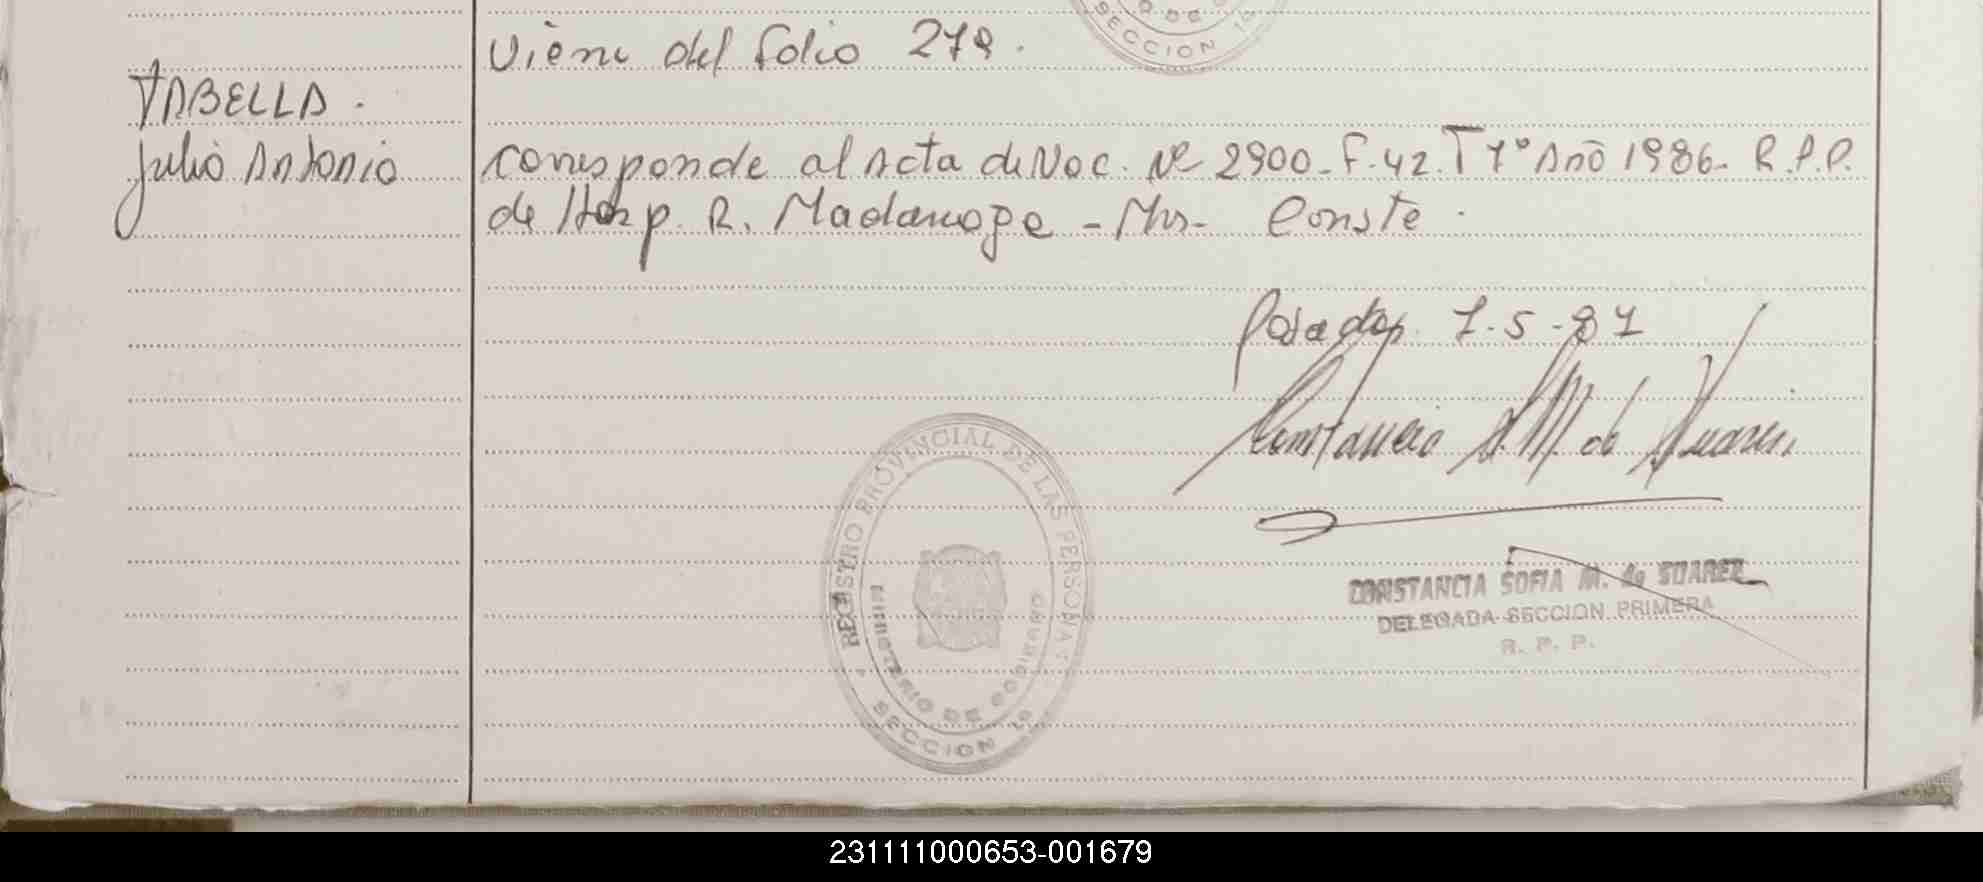 O DE G
SECCION 1º
Viene del folio 278.
TABELLA.
Julio Antonio
Corresponde al Acta de Nac. Nº 2900-F.42.T 7º Año 1986- R.P.P.
de Hosp. R. Madariaga - Mns- Conste.
Posadas, 7-5-87
Constancia S. M. de Suarez
REGISTRO PROVINCIAL DE LAS PERSONAS
MINISTERIO DE GOBIERNO
SECCION 1º
CONSTANCIA SOFIA M. de SUAREZ
DELEGADA SECCION PRIMERA
R. P. P.
231111000653-001679